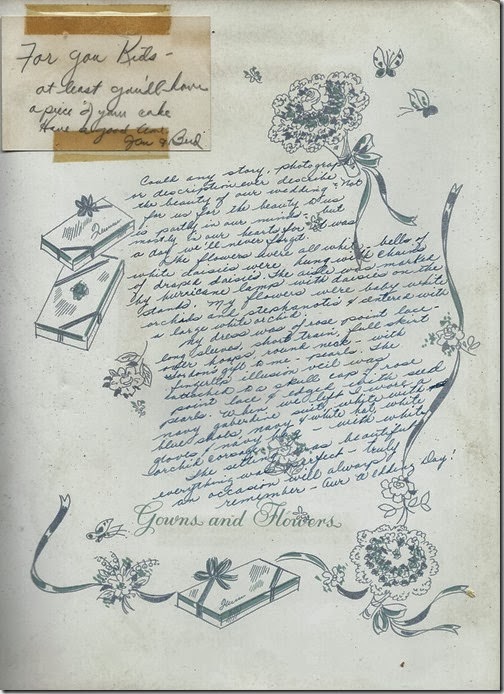 For you Kids -
at least you'll have
a piece of your cake
Have a good time
Jan & Bud
Could any story, photograph
or description ever describe
the beauty of our wedding? Not
for us for the beauty to us
is partly in our minds - but
mostly in our hearts for it was
a day we'll never forget.
The flowers were all white - bells of
white daisies were hung with chains
of draped daisies. The aisle was marked
by hurricane lamps with daisies on the
stands. My flowers were baby white
orchids and stephanotis & centered with
a large white orchid.
My dress was of rose point lace -
long sleeves, short train, full skirt
over hoops, round neck - with
gift to me - pearls. The
fingertip illusion veil was
attached to a skull cap of rose
point lace edged with seed
pearls. When we left I wore a
navy gabardine suit, white with
blue shoes, navy & white hat, white
gloves & navy - with white
orchid corsage.
The setting was beautiful
everything was perfect - truly
an occasion will always be
remember - Our Wedding Day!
Gowns and Flowers